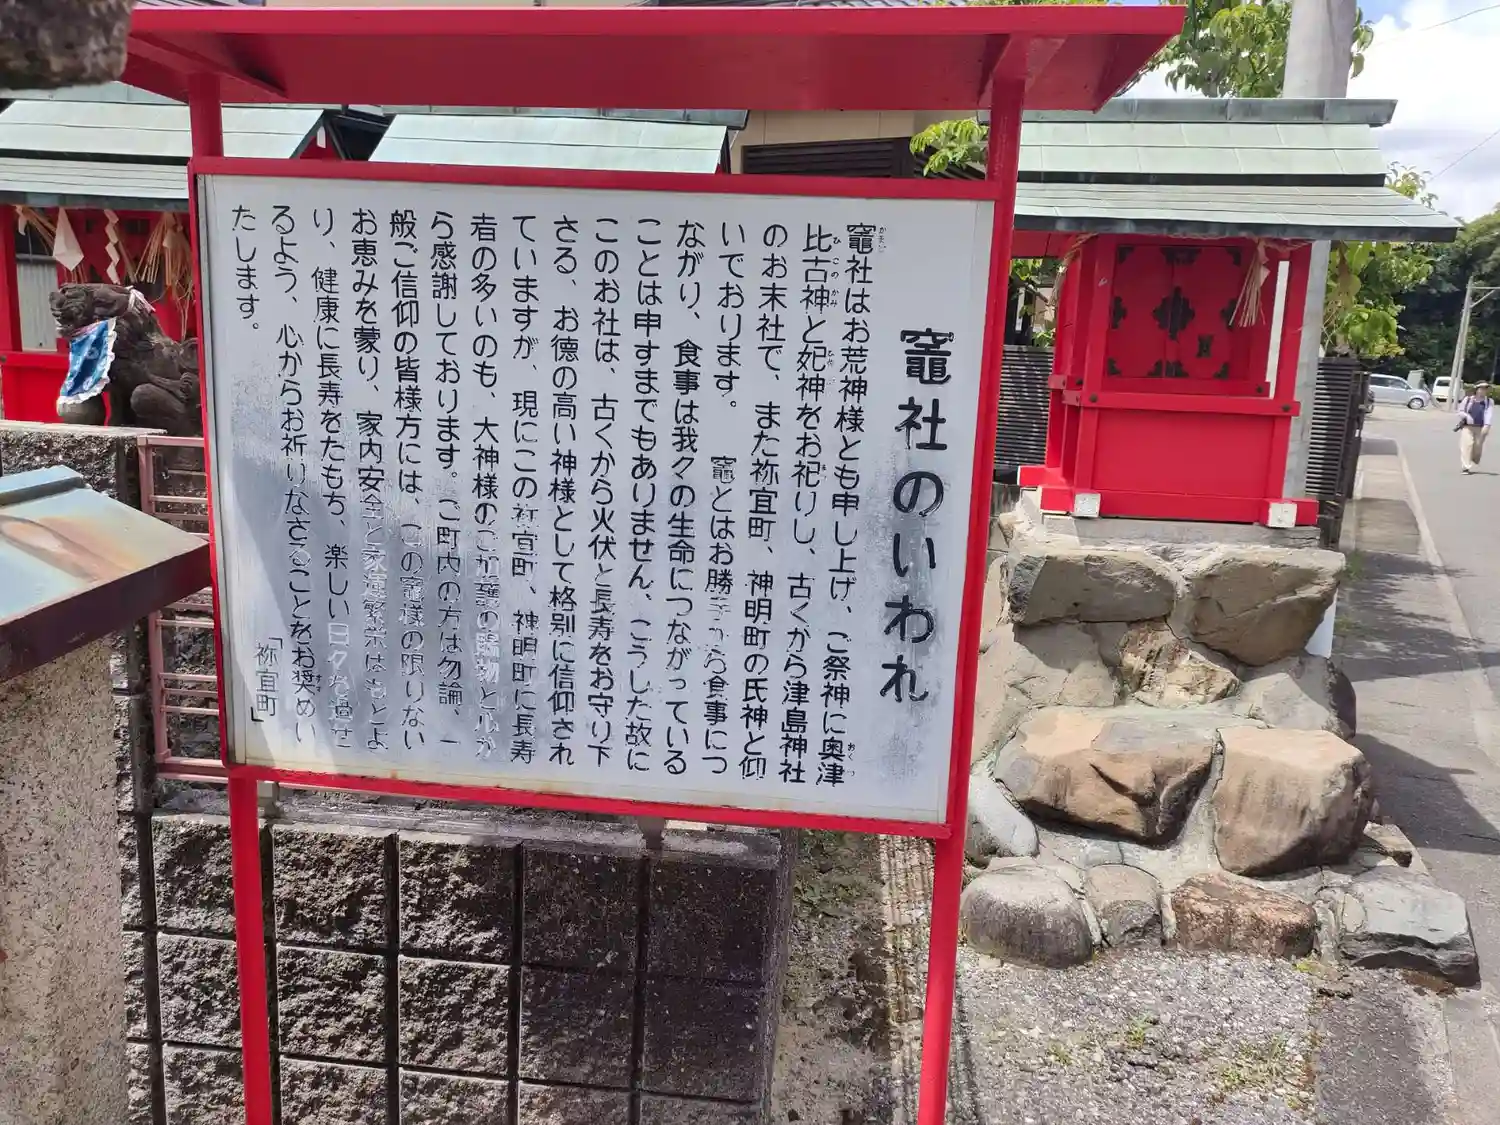 竈社のいわれ
竈社はお荒神様とも申し上げ、ご祭神に奥津
比古神と妃神をお祀りし、古くから津島神社
のお末社で、また祢宜町、神明町の氏神と仰
いでおります。 竈とはお勝手から食事につ
ながり、食事は我々の生命につながっている
ことは申すまでもありません、こうした故に
このお社は、古くから火伏と長寿をお守り下
さる、お徳の高い神様として格別に信仰され
ていますが、現にこの祢宜町、神明町に長寿
者の多いのも、大神様のご加護の賜物と心か
ら感謝しております。ご町内の方は勿論、一
般ご信仰の皆様方には、この竈様の限りない
お恵みを蒙り、家内安全と家運繁栄はもとよ
り、健康に長寿をたもち、楽しい日々を過せ
るよう、心からお祈りなさることをお奨めい
たします。
「祢宜町」